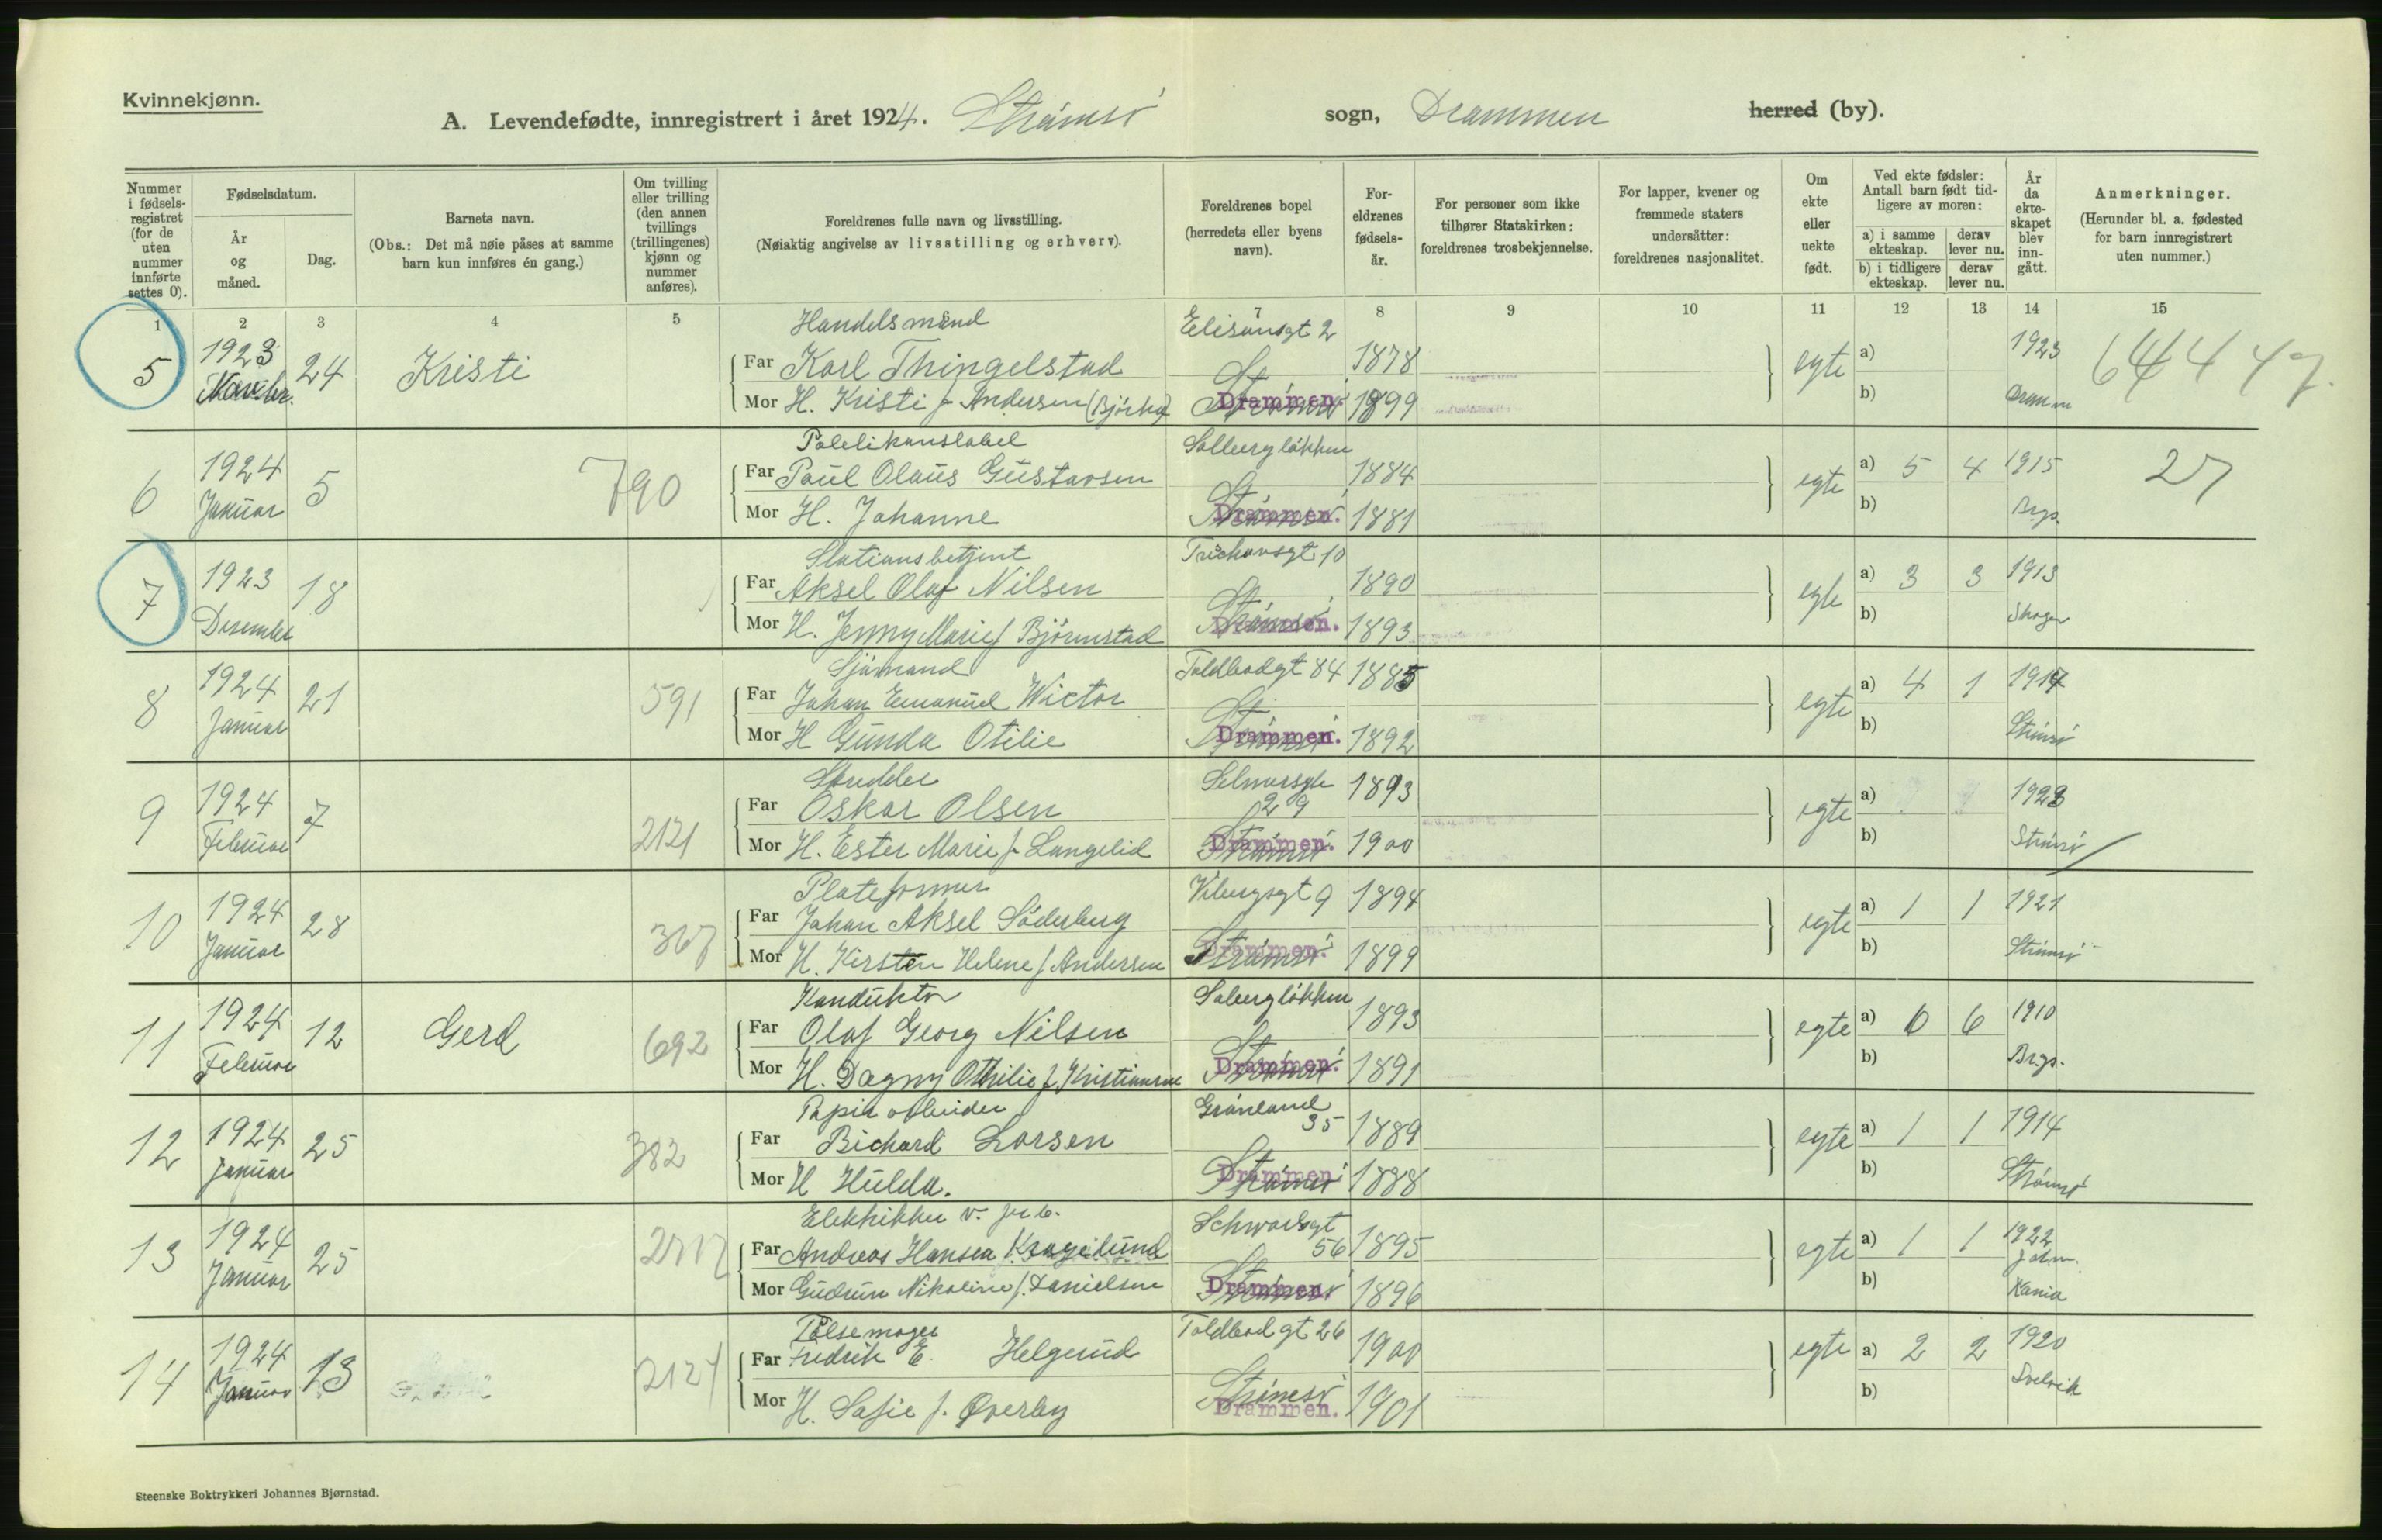 Kvinnekjønn.
A. Levendefødte, innregistrert i året 1924. Strømsø sogn, Drammen herred (by).
Nummer i fødsels-registret (for de uten nummer innførte settes 0).
Fødselsdatum.
År og måned.
Dag.
Barnets navn.
(Obs.: Det må nøie påses at samme barn kun innføres én gang.)
Om tvilling eller trilling (den annen tvillings (trillingenes) kjønn og nummer anføres).
Foreldrenes fulle navn og livsstilling.
(Nøiaktig angivelse av livsstilling og erhverv).
Foreldrenes bopel (herredets eller byens navn).
For-eldrenes fødsels-år.
For personer som ikke tilhører Statskirken: foreldrenes trosbekjennelse.
For lapper, kvener og fremmede staters undersåtter: foreldrenes nasjonalitet.
Om ekte eller uekte født.
Ved ekte fødsler: Antall barn født tid-ligere av moren:
a) i samme ekteskap. derav lever nu.
b) i tidligere ekteskap. derav lever nu.
År da ekte-skapet blev inn-gått.
Anmerkninger.
(Herunder bl. a. fødested for barn innregistrert uten nummer.)
1 2 3 4 5 7 8 9 10 11 12 13 14 15
Handelsmand
5 1923 Novbr. 24 Kristi Far Karl Thingelstad 1878 egte a) 1923 64447.
Mor H. Kristi f. Andersen Strømsø Drammen. 1899 b) Drammen
6 1924 Januar 5 790 Far Paul Olaus Gustavsen Solbergløkken 1884 egte a) 5 4 1915 27
Mor H. Johanne Strømsø Drammen. 1881 b) Brgs.
Stationsbetjent
7 1923 Desember 18 Far Aksel Olaf Nilsen 10 1890 egte a) 3 3 1913
Mor H. Jenny Marie f Bjørnstad Strømsø Drammen. 1893 b) Skoger
Sjømand
8 1924 Januar 21 591 Far Johan Emanuel Wictor Toldbodgt 84 1885 egte a) 4 1 1914
Mor H Gunda Otilie Strømsø Drammen. 1892 b) Strømsø
9 1924 Februar 7 2121 Far Oskar Olsen 29 1893 egte a) 1923
Mor H. Ester Marie f. Langelid Strømsø Drammen. 1900 b) Strømsø
Plateformer
10 1924 Januar 28 367 Far Johan Aksel Söderberg Vibergsgt 9 1894 egte a) 1 1 1921
Mor H. Kirsten Helene f Andersen Strømsø Drammen. 1899 b) Strømsø
Konduktør
11 1924 Februar 12 Gerd 692 Far Olaf Georg Nilsen Solbergløkken 1893 egte a) 6 6 1910
Mor H. Dagny Othilie f. Kristiansen Strømsø Drammen. 1891 b) Brgs.
Papirarbeider
12 1924 Januar 25 382 Far Richard Larsen Grønland 35 1889 egte a) 1 1 1914
Mor H Hulda. Strømsø Drammen. 1888 b) Strømsø
Elektriker v.
13 1924 Januar 25 2717 Far Andreas Hansen Kragelund Schwartzgt 56 1895 egte a) 1 1 1922
Mor Gudrun Nikoline f. Danielsen Strømsø Drammen. 1896 b) Kania
Pølsemager
14 1924 Januar 13 2127 Far Fredrik E. Helgerud Toldbodgt 26 1900 egte a) 2 2 1920
Mor H. Sofie f. Øverby Strømsø Drammen. 1901 b) Svelvik
Steenske Boktrykkeri Johannes Bjørnstad.